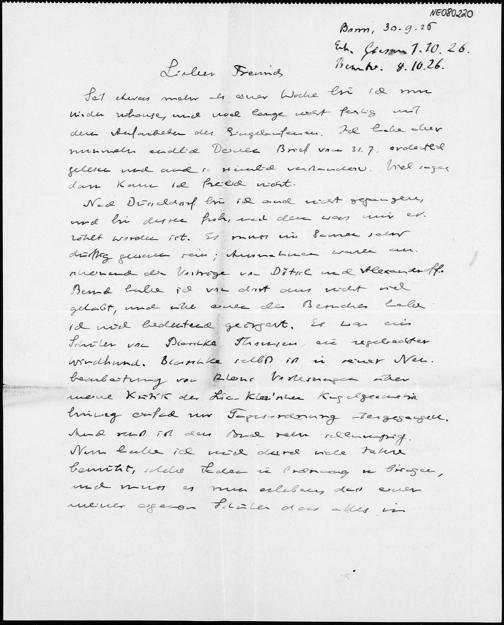 NE080220
Bonn, 30.9.26
Erh. 1.10.26.
Beantw. 8.10.26.
Lieber Freund
Seit etwas mehr als einer Woche bin ich nun
wieder zuhause, und noch lange nicht fertig mit
dem Aufarbeiten des Eingelaufenen. Ich habe aber
nunmehr endlich Deinen Brief vom 31.7. ordentlich
gelesen und auch ziemlich verstanden. Viel sagen
dazu kann ich freilich nicht.
Nach Düsseldorf bin ich auch nicht gegangen,
und bin dessen froh, nach dem was mir er-
zählt worden ist. Es muss im Ganzen sehr
dürftig gewesen sein; Ausnahmen waren an-
scheinend die Vorträge von Dötsch und Alexandroff.
Besuch habe ich von dort aus nicht viel
gehabt, und über einen der Besucher habe
ich mich bedeutend geärgert. Es war ein
Schüler von Blaschke, Thomsen, ein
Windhund. Blaschke selbst ist in seiner Neu-
bearbeitung von Kleins Vorlesungen über
meine Kritik der Lie-Klein'schen Kugelgeometrie
hinweg einfach zur Tagesordnung übergegangen.
Auch sonst ist das Buch sehr
Nun habe ich mich durch viele Jahre
bemüht, solche Sachen in Ordnung zu bringen,
und muss es nun erleben, dass einer
meiner eigenen Schüler dass alles in